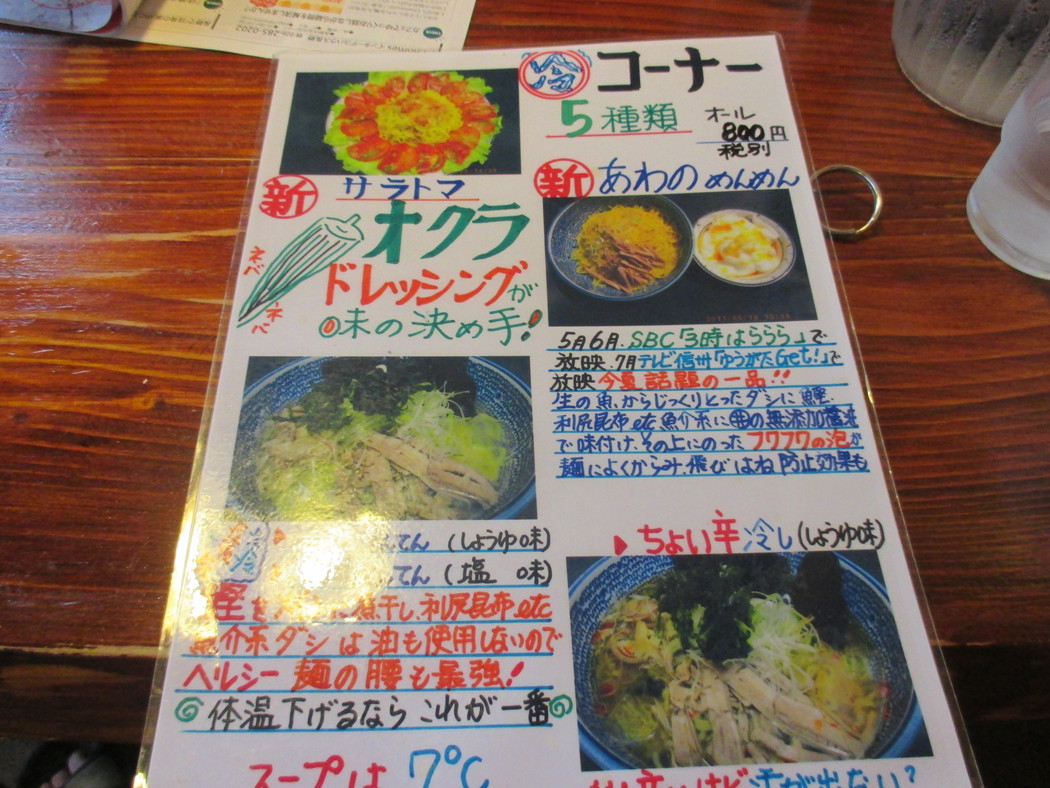 冷 コーナー
5種類
オール
800円
税別
新 サラトマ
オクラ
ドレッシングが
味の決め手!
ネバ
ネバ
新 あわの めんめん
5月6月.SBC「3時はららら」で
放映.7月テレビ信州「ゆうがたGet!」で
放映 今夏話題の一品!!
生の魚からじっくりとったダシに鰹.
利尻昆布etc魚介系に の無添加醤油
で味付け、その上にのったフワフワの泡が
麺によくからみ.飛びはね防止効果も
てん (しょうゆ味)
てん (塩味)
煮干し.利尻昆布.etc
魚介系ダシは油も使用しないので
ヘルシー 麺の腰も最強!
体温下げるなら これが一番
スープは 7℃
ちょい辛冷し(しょうゆ味)
汗が出ない?